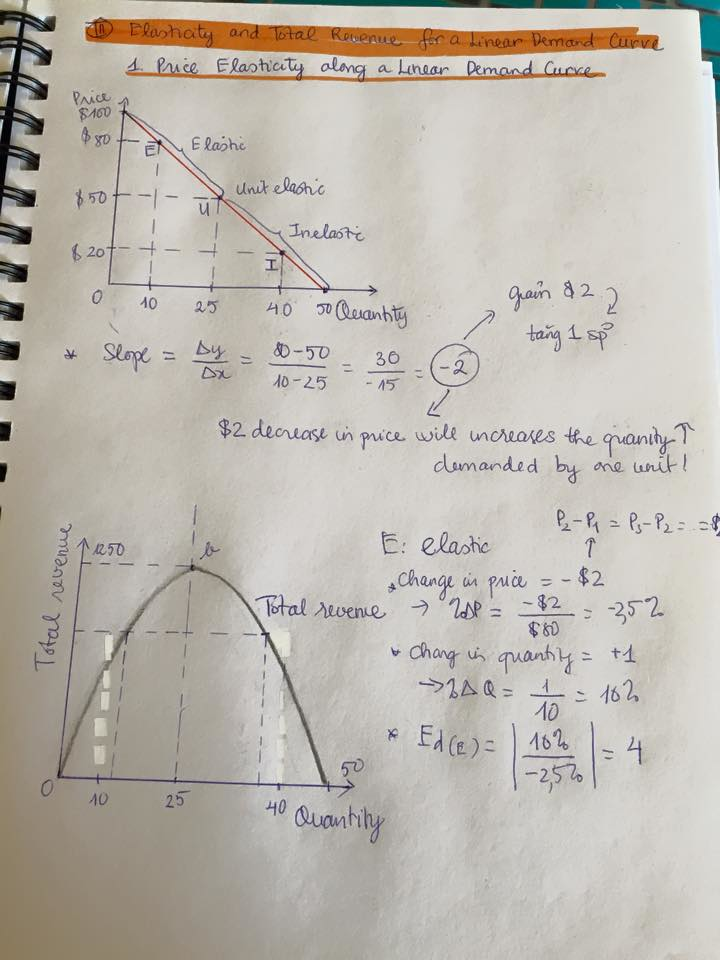 III Elasticity and Total Revenue for a Linear Demand Curve
1. Price Elasticity along a Linear Demand Curve
Price
$100
$80
E
Elastic
$50
U
Unit elastic
$20
I
Inelastic
0 10 25 40 50 Quantity
* Slope = Δy/Δx = 80-50/10-25 = 30/-15 = -2
giảm $2
tăng 1 sp
$2 decrease in price will increases the quanity ↑
demanded by one unit!
Total revenue
1250
b
Total revenue
0 10 25 40 50
Quantity
P2-P1 = P3-P2 = = $
E: elastic
* change in price = - $2
→ %ΔP = -$2/$80 = -2,5%
* chang in quantity = +1
→ %ΔQ = 1/10 = 10%
* Ed(E) = |10%/-2,5%| = 4